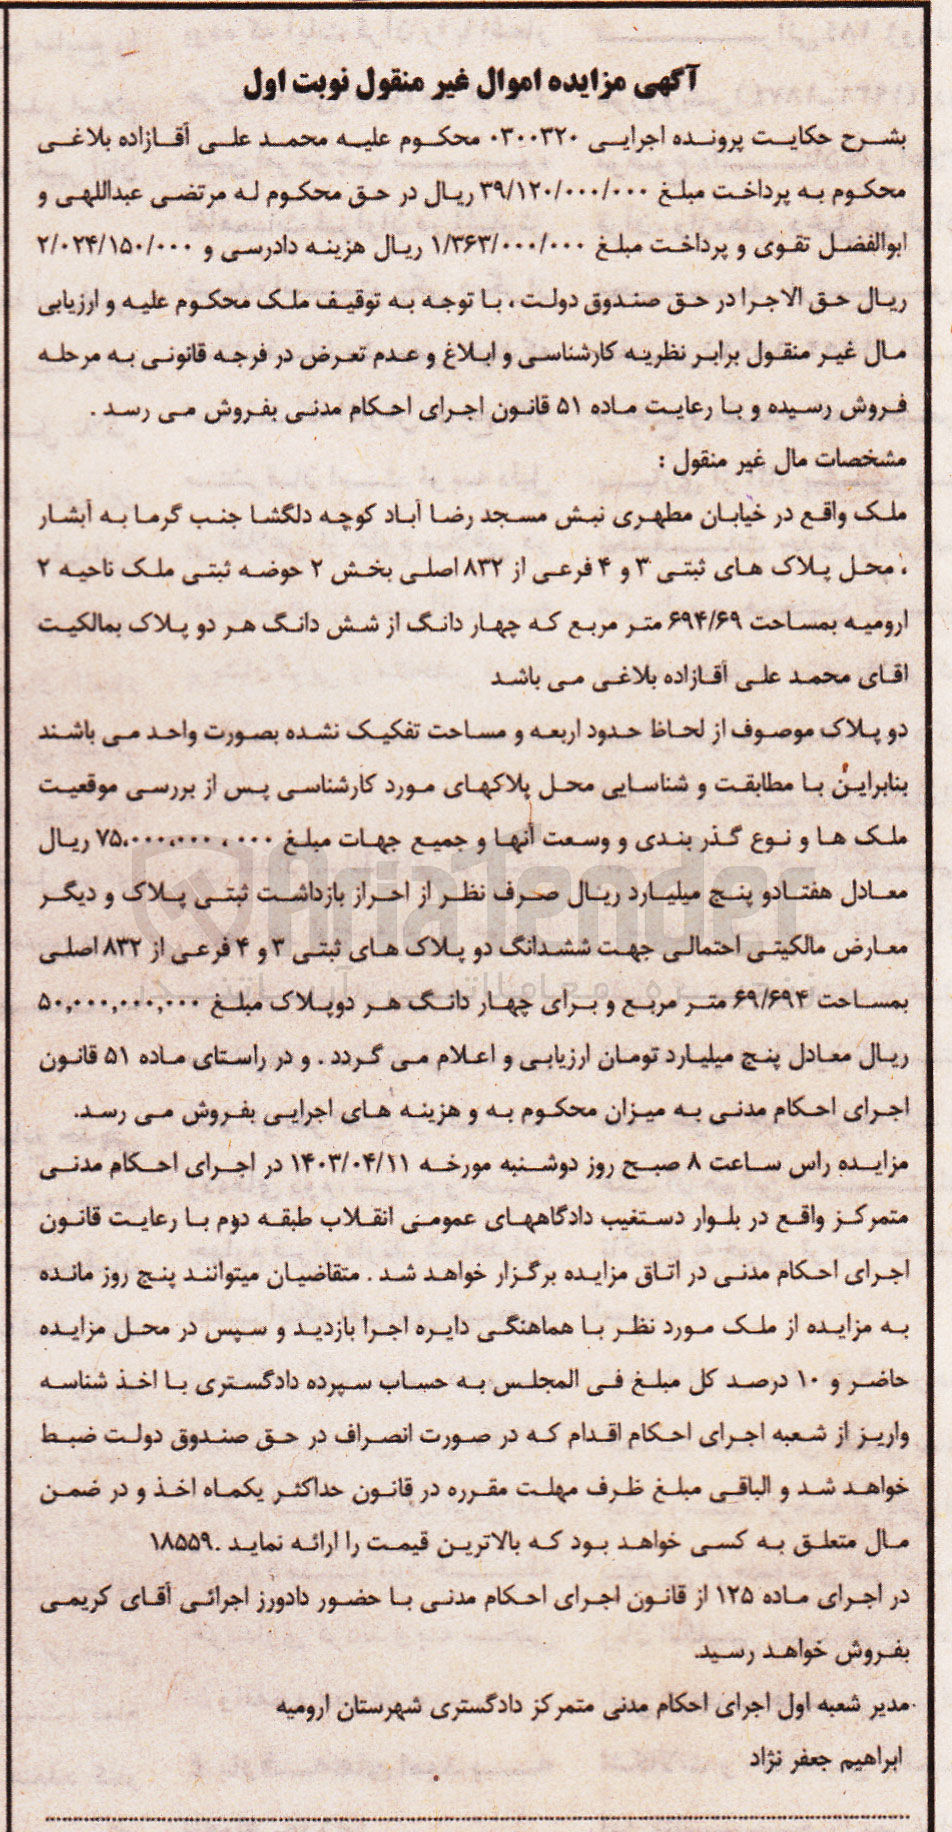 آگهی مزایده اموال غیر منقول نوبت اول
بشرح حکایت پرونده اجرایی ۰۳۰۰۳۲۰ محکوم علیه محمد علی آقازاده بلاغی
محکوم به پرداخت مبلغ ۳۹/۱۲۰/۰۰۰/۰۰۰ ریال در حق محکوم له مرتضی عبداللهی و
ابوالفضل تقوی و پرداخت مبلغ ۱/۳۶۳/۰۰۰/۰۰۰ ریال هزینه دادرسی و ۲/۰۲۴/۱۵۰/۰۰۰
ریال حق الاجرا در حق صندوق دولت ، با توجه به توقیف ملک محکوم علیه و ارزیابی
مال غیر منقول برابر نظریه کارشناسی و ابلاغ و عدم تعرض در فرجه قانونی به مرحله
فروش رسیده و با رعایت ماده ۵۱ قانون اجرای احکام مدنی بفروش می رسد .
مشخصات مال غیر منقول :
ملک واقع در خیابان مطهری نبش مسجد رضا آباد کوچه دلگشا جنب گرما به آبشار
، محل پلاک های ثبتی ۳ و ۴ فرعی از ۸۳۲ اصلی بخش ۲ حوضه ثبتی ملک ناحیه ۲
ارومیه بمساحت ۶۹۴/۶۹ متر مربع که چهار دانگ از شش دانگ هر دو پلاک بمالکیت
اقای محمد علی آقازاده بلاغی می باشد
دو پلاک موصوف از لحاظ حدود اربعه و مساحت تفکیک نشده بصورت واحد می باشند
بنابراین با مطابقت و شناسایی محل پلاکهای مورد کارشناسی پس از بررسی موقعیت
ملک ها و نوع گذر بندی و وسعت آنها و جمیع جهات مبلغ ۷۵،۰۰۰،۰۰۰ ، ۰۰۰ ریال
معادل هفتادو پنج میلیارد ریال صرف نظر از احراز بازداشت ثبتی پلاک و دیگر
معارض مالکیتی احتمالی جهت ششدانگ دو پلاک های ثبتی ۳ و ۴ فرعی از ۸۳۲ اصلی
بمساحت ۶۹/۶۹۴ متر مربع و برای چهار دانگ هر دوپلاک مبلغ ۵۰,۰۰۰,۰۰۰,۰۰۰
ریال معادل پنج میلیارد تومان ارزیابی و اعلام می گردد . و در راستای ماده ۵۱ قانون
اجرای احکام مدنی به میزان محکوم به و هزینه های اجرایی بفروش می رسد.
مزایده راس ساعت ۸ صبح روز دوشنبه مورخه ۱۴۰۳/۰۴/۱۱ در اجرای احکام مدنی
متمرکز واقع در بلوار دستغیب دادگاههای عمومی انقلاب طبقه دوم با رعایت قانون
اجرای احکام مدنی در اتاق مزایده برگزار خواهد شد . متقاضیان میتوانند پنج روز مانده
به مزایده از ملک مورد نظر با هماهنگی دایره اجرا بازدید و سپس در محل مزایده
حاضر و ۱۰ درصد کل مبلغ فی المجلس به حساب سپرده دادگستری با اخذ شناسه
واریز از شعبه اجرای احکام اقدام که در صورت انصراف در حق صندوق دولت ضبط
خواهد شد و الباقی مبلغ ظرف مهلت مقرره در قانون حداکثر یکماه اخذ و در ضمن
مال متعلق به کسی خواهد بود که بالاترین قیمت را ارائه نماید .۱۸۵۵۹
در اجرای ماده ۱۲۵ از قانون اجرای احکام مدنی با حضور دادورز اجرائی آقای کریمی
بفروش خواهد رسید.
مدیر شعبه اول اجرای احکام مدنی متمرکز دادگستری شهرستان ارومیه
ابراهیم جعفر نژاد
AriaTender